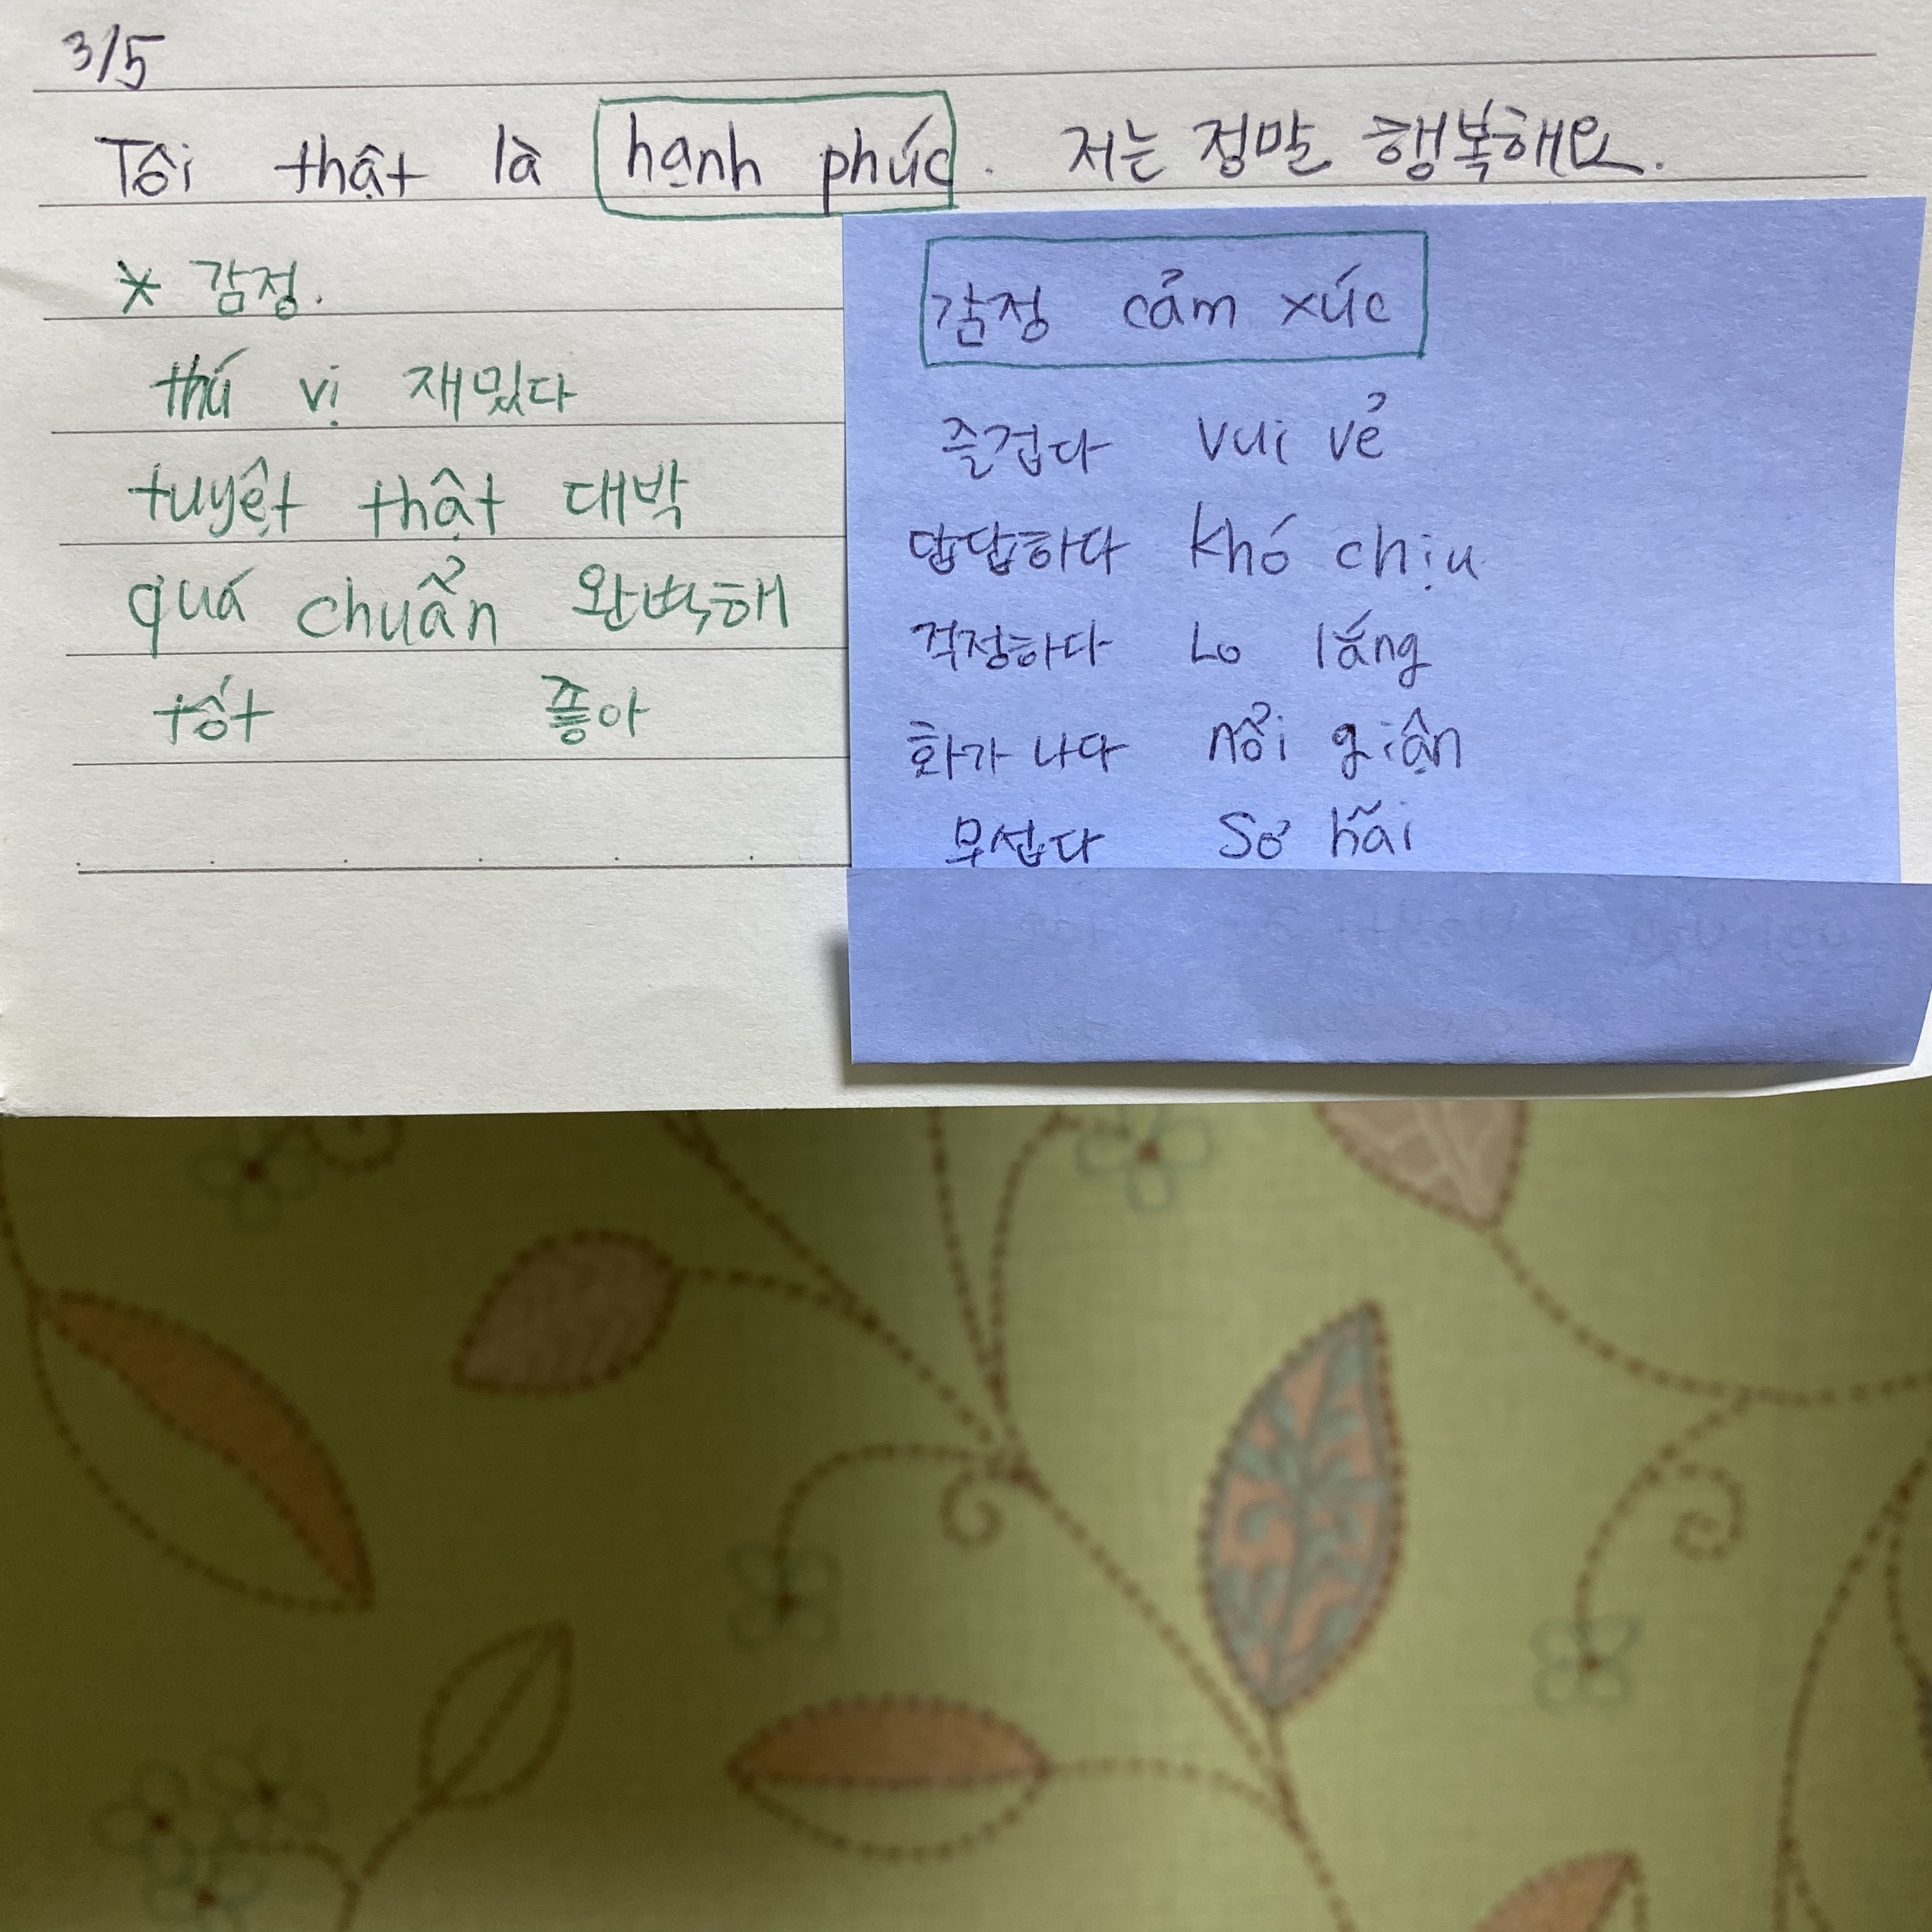 3/5
Tôi thật là hạnh phúc. 저는 정말 행복해요.
* 감정.
thú vị 재밌다
tuyệt thật 대박
quá chuẩn 완벽해
tốt 좋아
감정 cảm xúc
즐겁다 vui vẻ
답답하다 khó chịu
걱정하다 Lo lắng
화가 나다 nổi giận
무섭다 Sợ hãi